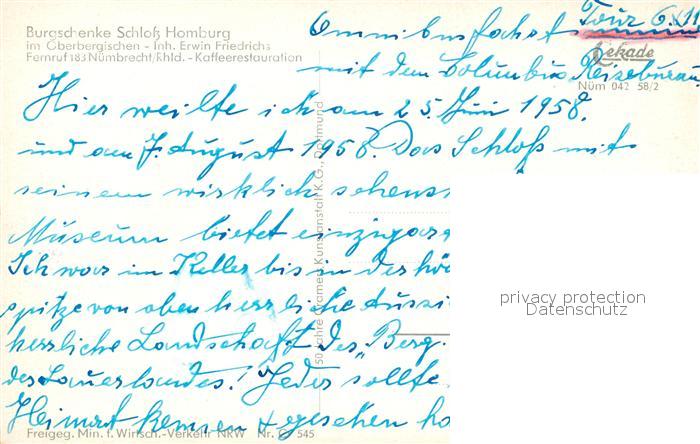 Burgschenke Schloß Homburg
im Oberbergischen - Inh. Erwin Friedrichs
Fernruf 183 Nümbrecht/Rhld. - Kaffeerestauration
Omnibusfahrt Tour 6.
Cekade
mit dem Columbus Reisebureau
Nüm 042 58/2
Hier weilte ich am 25. Juni 1958.
und am 7. August 1958. Das Schloß mit
seinem wirklich sehens
Museum bietet einzigar
Ich war im Keller bis in der hö
spitze von oben herrliche Aussi
herrliche Landschaft des „Berg.
des Sauerlandes! Jeder sollte
Heimat kennen + gesehen ha
50 Jahre Kunstanstalt K.G., Dortmund
privacy protection
Datenschutz
Freigeg. Min. f. Wirtsch.-Verkehr NRW Nr. 545